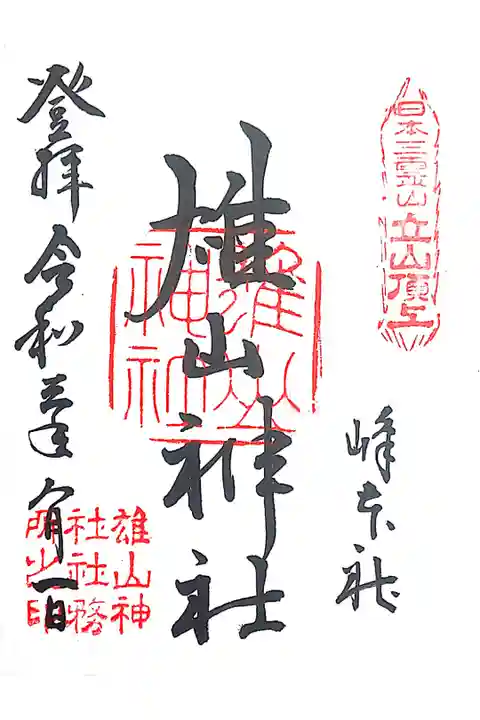 日本三霊山立山頂上
峰本社
雄山神社
雄山神社
登拝 令和三年 八月一日
雄山神
社社務
所出印